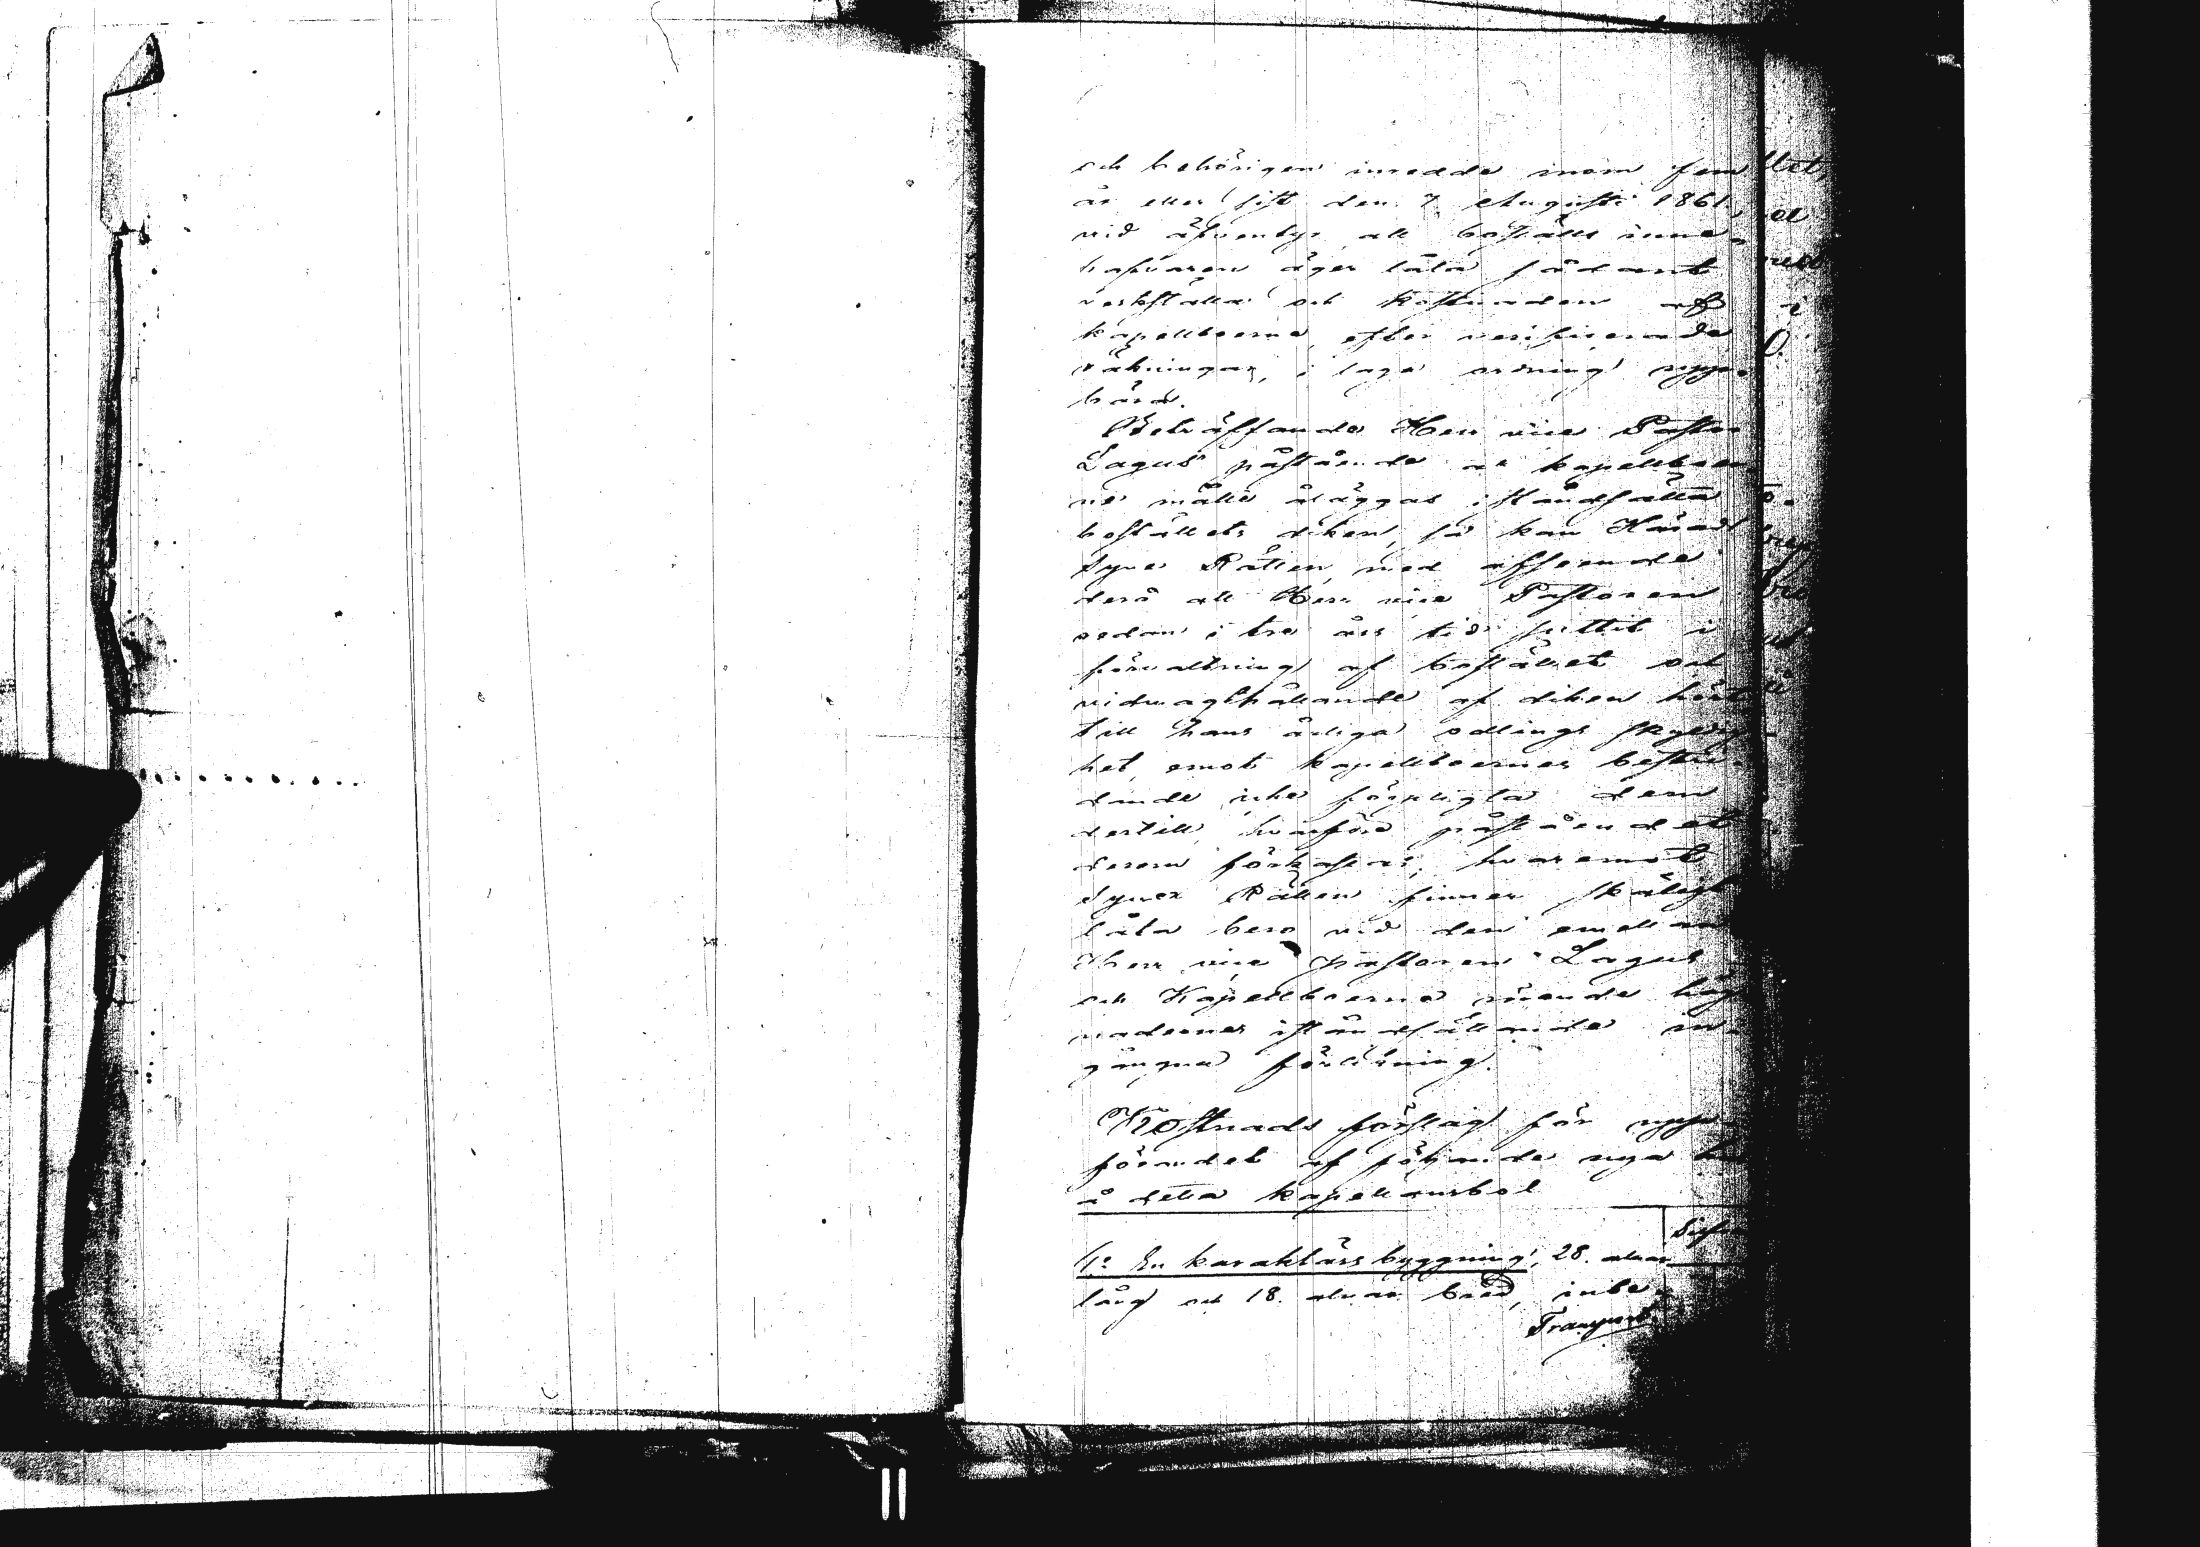 och behörigen inredda inom fem
år eller sist den 7 Augusti 1861,
vid äfventyr att boställs inne-
hafvaren äger låta sådant
verkställa och kostnaden af
kapellboerna, efter verificerade
räkningar, i laga ordning upp-
bära.
Beträffande Herr vice Pastor
Lagus' påstående at kapellboer-
ne måtte åläggas iståndsätta
boställets diken, så kan Härads
Syne Rätten, med afseende
derå att Herr vice Pastoren
redan i tre års tid suttit i
förvaltning af bostället och
vidmagthållande af diken hört
till hans årliga odlings skyldig-
het, emot kapellboernes bestri-
dande icke förpligta dem
dertill, hvarföre påståendet
derom förkastas; hvaremot
Syne Rätten finner skäligt
låta bero vid den emellan
Herr vice pastoren Lagus
och Kapellboerne rörande häg-
nadernes iståndsättande in-
gångna förlikning.
Kostnads förslag för upp-
förandet af följande nya hus
å detta kapellansbol
1:o En karaktärs byggning, 28. alnar
lång och 18. alnar bred, inbe-
Transport